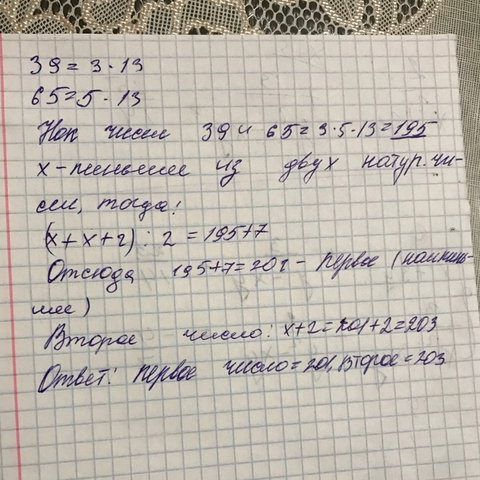 39 = 3 · 13
65 = 5 · 13
Нок чисел 39 и 65 = 3 · 5 · 13 = 195
x - меньшее из двух натур. чи-
сел, тогда:
(x + x + 2) : 2 = 195 + 7
Отсюда 195 + 7 = 201 - первое (наимень-
шее)
Второе число: x + 2 = 201 + 2 = 203
Ответ: первое число = 201, второе = 203